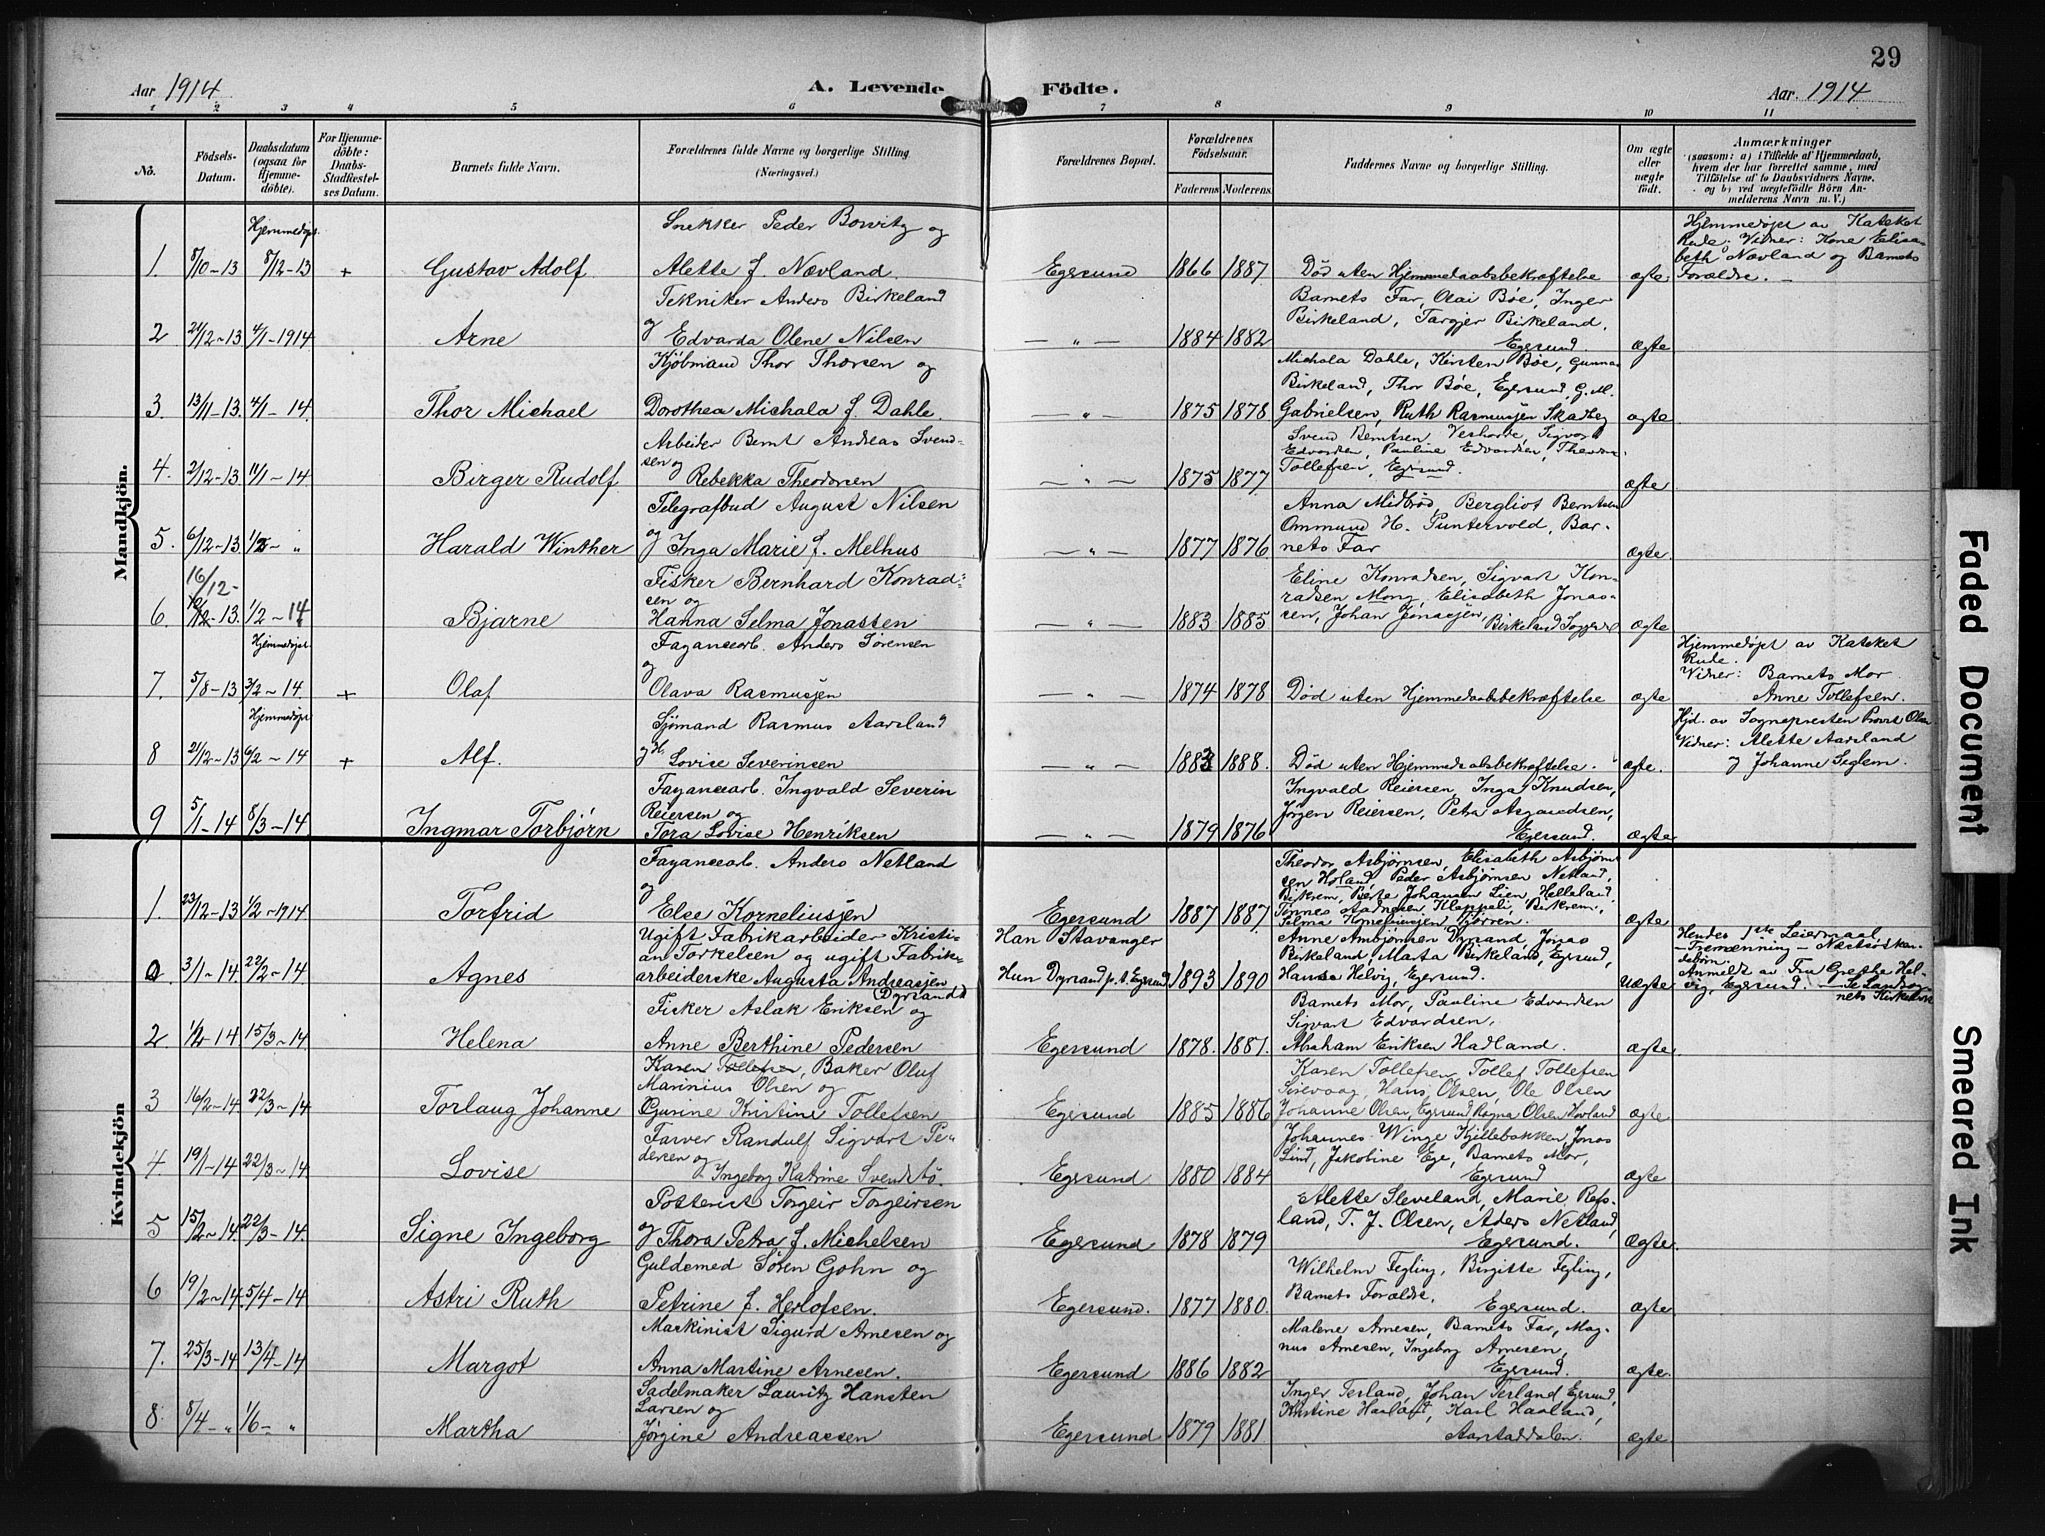 29
Aar 1914
A. Levende
Födte.
Aar. 1914
1 2 3 4 5 6 7 8 9 10 11
No.
Födsels-
Datum.
Daabsdatum
(ogsaa for
Hjemme-
döbte).
For Hjemme-
döbte:
Daabs-
Stadfæstel-
ses Datum.
Barnets fulde Navn.
Forældrenes fulde Navne og borgerlige Stilling
(Næringsvei.)
Forældrenes Bopæl.
Forældrenes
Födselsaar.
Faderens. Moderens.
Faddernes Navne og borgerlige Stilling.
Om ægte
eller
uægte
födt.
Anmærkninger
(saasom: a) i Tilfælde af Hjemmedaab,
hvem der har forrettet samme, med
Tilföielse af to Daabsvidners Navne,
og b) ved uægtefödte Börn An-
melderens Navn m. V.)
Mandkjön.
Hjemmedöpt.
1. 8/10-13 8/12-13 + Gustav Adolf.
Snekker Peder Bowitz og
Alette f. Nævland.
Egersund 1866 1887. Död uten Hjemmedaabsbekræftelse ægte
Hjemmedöpt av Kateket
Rude. Vidner: Kone Elisa-
beth Nævland og Barnets
Forældre. —
2 21/12-13 4/1-1914. Arne
Tekniker Anders Birkeland
og Edvarda Olene Nilsen
— " — 1884 1882
Barnets Far, Olai Bøe, Inger
Birkeland, Targjer Birkeland,
Egersund. ægte
3 13/11-13. 4/1-14. Thor Michael
Kjöbmand Thor Thorsen og
Dorothea Michala f. Dahle.
— " — 1875 1878
Michala Dahle, Kirsten Bøe, Gunnar
Birkeland, Thor Bøe, Egersund, G. M.
Gabrielsen, Ruth Rasmusjen Skadberg ægte
4. 2/12-13 11/1-14 Birger Rudolf.
Arbeider Bernt Andreas Svend-
sen og
Rebekka Theodorsen
— " — 1875 1877
Svend Berntsen, Sigvor
Edvardsen, Pauline Edvardsen, Theodor
Tollefsen, Egersund. ægte
5. 6/12-13 1/2- " Harald Winther
Telegrafbud August Nilsen
og Inga Marie f. Melhus
— " — 1877 1876
Anna Midbrød, Bergliot Berntsen
Ommund H. Puntervold, Bar-
nets Far ægte.
16/12-
6. 13. 1/2-14 Bjarne
Fisker Bernhard Konrad-
sen og
Hanna Selma Jonassen
— " — 1883 1885
Eline Konradsen, Sigvart Kon-
radsen Mong, Elisabeth Jonas-
sen, Johan Jonasjen, Birkeland ægte
Hjemmedöpt.
7. 5/8-13 3/2-14. + Olaf
Fayancearb. Anders Sörensen
og
Olava Rasmusjen
— " — 1874 1878 Död uten Hjemmedaabsbekræftelse ægte
Hjemmedöpt av Kateket
Rude.
Vidner: Barnets Mor.
Anne Tollefsen.
Hjemmedöpt
8 21/12-13 6/2-14 + Alf.
Sjömand Rasmus Aarsland
og H.
Lovise Severinsen
— " — 1883 1888. Död uten Hjemmedaabsbekræftelse. ægte.
Hjd. av Sognepresten Provst Olsen.
Vidner: Alette Aarsland
og Johanne Seglem.
9 5/1-14 8/3-14 Ingmar Torbjörn
Fayancearb. Ingvald Severin
Reiersen og
Tora Lovise Henriksen
— " — 1879 1876
Ingvald Reiersen, Inga Knudsen,
Jörgen Reiersen, Petra Asgaudsen,
Egersund. ægte
Kvindekjön
1. 23/12-13 1/2-1914 Torfrid
Fayancearb. Anders Netland
og
Else Korneliusjen
Egersund 1887 1887
Theodor Asbjørnsen, Elisabeth Asbjørn-
sen Holand, Peder Asbjørnsen Netland,
Birkrem, Berte Johansen Lien, Helleland,
Tønnes Aadnesen Kleppeli, Birkrem,
Selma Korneliusjen ægte
0 3/1-14. 22/2-14 Agnes
Ugift Fabrikarbeider Kristi-
an Torkelsen og ugift Fabrik-
arbeiderske Augusta Andreasjen
(Dyrsand)
Han Stavanger
Hun Dyrsand p. t. Egersund 1893 1890
Anne Ambjørnsen Dyrsand, Jonas
Birkeland, Marta Birkeland, Egersund,
Hansa Helvig, Egersund. Uægte
Hendes 1ste Leiermaal
—Tremænning— Næstsödsken-
debörn.
Anmeldt av Fru Grethe Hel-
vig, Egersund.
2 14 15/3-14. Helena
Fisker Aslak Eriksen og
Anne Berthine Pedersen
Egersund 1878. 1881.
Barnets Mor, Pauline Edvardsen
Sigvart Edvardsen,
Abraham Eriksen Hadland. ægte
3 16/2-14 22/3-14 Torlaug Johanne
Karen Tollefsen, Baker Oluf
Marinius Olsen og
Gurine Kristine Tollefsen
Egersund 1885 1886
Karen Tollefsen, Tollef Tollefsen
Sirevaag, Hans Olsen, Ole Olsen
Johanne Olsen, Egersund, Ragna Olsen Hovland ægte
4 19/1-14 22/3-14 Lovise
Farver Randulf Sigvart Pe-
dersen og
Ingeborg Katrine Svendsbö.
Egersund 1880 1884
Johannes Winge Kjillebakken, Jonas
Lind, Jakobine Ege, Barnets Mor,
Egersund ægte
5 15/2-14 22/3-14 Signe Ingeborg
Postbetj. Torgeir Torgeirsen
og Thora Petra f. Michelsen
Egersund 1878 1879
Alette Sleveland, Marie Refs-
land, T. J. Olsen, Aders Netland,
Egersund. ægte
6 19/2-14. 5/4-14 Astri Ruth
Guldsmed Sören Gohn og
Petrine f. Herlofsen.
Egersund. 1877 1880.
Wilhelm Fegling, Birgitte Fegling,
Barnets Forældre,
Egersund. ægte
7. 25/3-14 13/4-14 Margot
Maskinist Sigurd Arnesen og
Anna Martine Arnesen.
Egersund 1886 1882
Malene Arnesen, Barnets Far, Mag-
nus Arnesen, Ingeborg Arnesen,
Egersund. ægte.
8. 8/4- " 1/6- " Martha
Sadelmaker Lauritz Hansten
Larsen og
Jørgine Andreassen
Egersund 1879 1881.
Inger Terland, Johan Terland Egersund,
Kristine Haaland, Karl Haaland,
Aarstaddalen. ægte
Faded Document
Smeared Ink